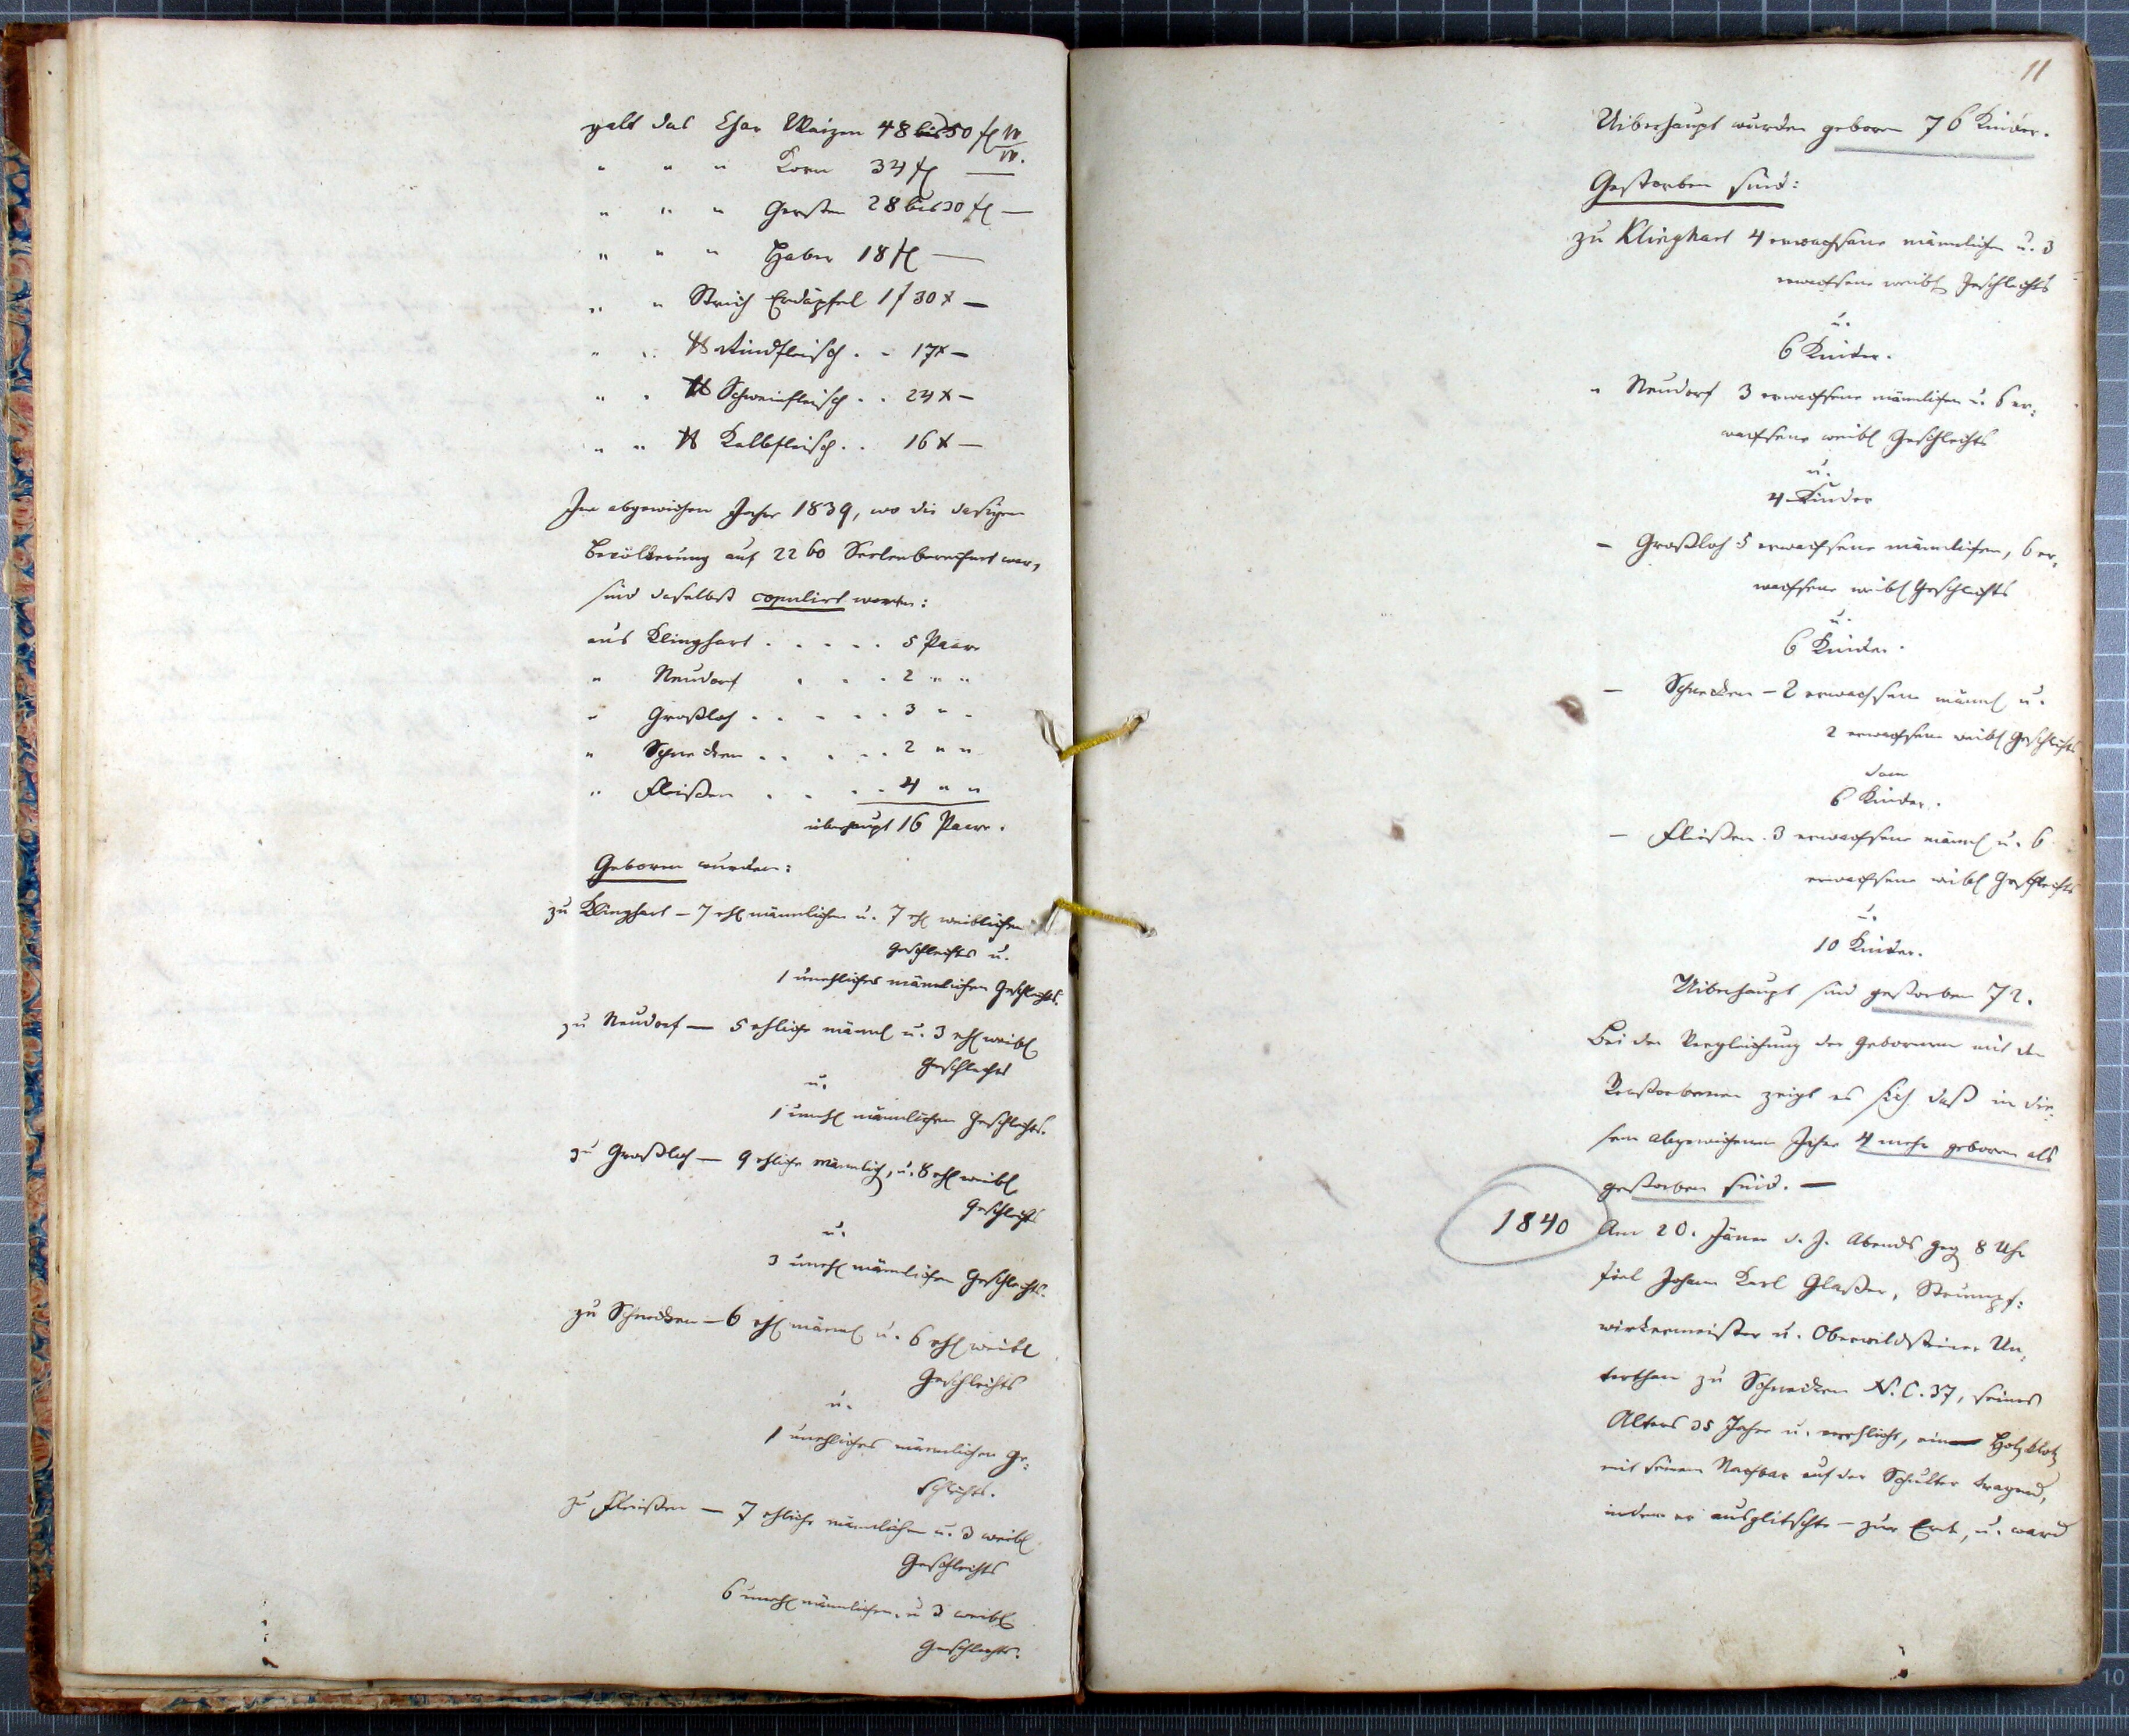 galt das Char Weizen 48 bis 50 fl W
W.
" " " Korn 34 fl —
" " " Gersten 28 bis 30 fl —
" " " Haber 18 fl —
" " Strich Erdäpfel 1 f 30 x —
" " ℔ Rindfleisch . . 17 x —
" " ℔ Schweinfleisch . . 24 x —
" " ℔ Kalbfleisch . . 16 x —
Im abgewichen Jahre 1839, wo die dasigen
Bevölkerung auf 2260 Seelen berechnet war,
sind daselbst copulirt worden:
aus Klinghart . . . . . 5 Paar
" Neudorf . . . 2 " "
" Großloh . . . . . 3 " "
" Schnecken . . . . . 2 " "
" Fleißen . . . . 4 " "
überhaupt 16 Paare.
Geboren wurden:
zu Klinghart — 7 ehl männlichen u. 7 ehl weiblichen
Geschlechts u.
1 unehliches männlichen Geschlechts.
zu Neudorf — 5 ehliche männl u. 3 ehl weibl
Geschlechts
u.
1 unehl männlichen Geschlechts.
zu Großloh — 9 ehliche männlich, u. 8 ehl weibl
Geschlechts
u.
3 unehl männlichen Geschlechts.
zu Schnecken — 6 ehl männl u. 6 ehl weibl
Geschlechts
u.
1 unehliches männlichen Ge:
schlechts.
zu Fleißen — 7 ehliche männlichen u. 3 weibl
Geschlechts
6 unehl männlichen, u 3 weibl
Geschlechts.
11
Uiberhaupt wurden geboren 76 Kinder.
Gestorben sind:
zu Klinghart 4 erwachsene männlichen u. 3
erwachsene weibl Geschlechts
u.
6 Kinder.
" Neudorf 3 erwachsene männlichen u. 6 er:
wachsene weibl Geschlechts
u.
4 Kinder
— Großloh 5 erwachsene männlichen, 6 er:
wachsene weibl Geschlechts
u.
6 Kinder.
— Schnecken — 2 erwachsene männl u.
2 erwachsene weibl Geschlechts
dann
6 Kinder.
— Fleißen 3 erwachsene männl u. 6
erwachsene weibl Geschlechts
u.
10 Kinder.
Uiberhaupt sind gestorben 72.
Bei der Vergleichung der Geborenen mit den
Verstorbenen zeigt es sich daß in die:
sem abgewichenen Jahre 4 mehr geboren als
gestorben sind. —
1840 Am 20. Jäner d. J. Abends geg 8 Uhr
fiel Johann Karl Glaßer, Strumpf:
wirkermeister u. Oberwildsteiner Un:
terthan zu Schnecken N. C. 37, seines
Alters 35 Jahre u. verehlicht, ein Holzklotz
mit seinem Nachbar auf der Schulter tragend,
indem er ausglitschte — zur Erde, u. ward